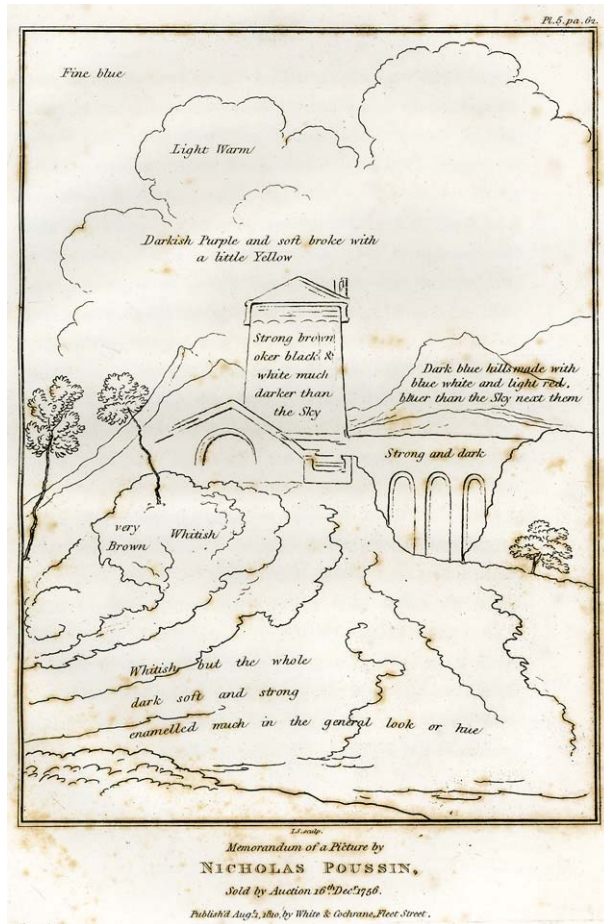 Pl. 5. pa. 62.
Fine blue
Light Warm
Darkish Purple and soft broke with
a little Yellow
Strong brown
oker black, &
white much
darker than
the Sky
Dark blue hills made with
blue white and light red,
bluer than the Sky next them
Strong and dark
very
Brown
Whitish
Whitish but the whole
dark soft and strong
enamelled much in the general look or hue
I.S. sculp.
Memorandum of a Picture by
NICHOLAS POUSSIN,
Sold by Auction 16th Decr. 1756.
Publish'd Augt. 1, 1810, by White & Cochrane, Fleet Street.